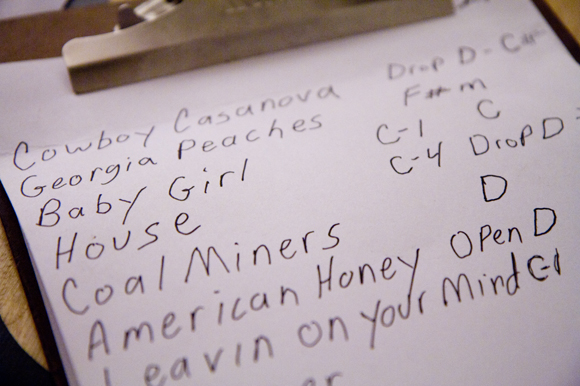 Cowboy Casanova Drop D - C#
Georgia Peaches F# m
Baby Girl C-1 C
House C-4 Drop D
Coal Miners D
American Honey Open D
Leavin on your Mind C-1
er